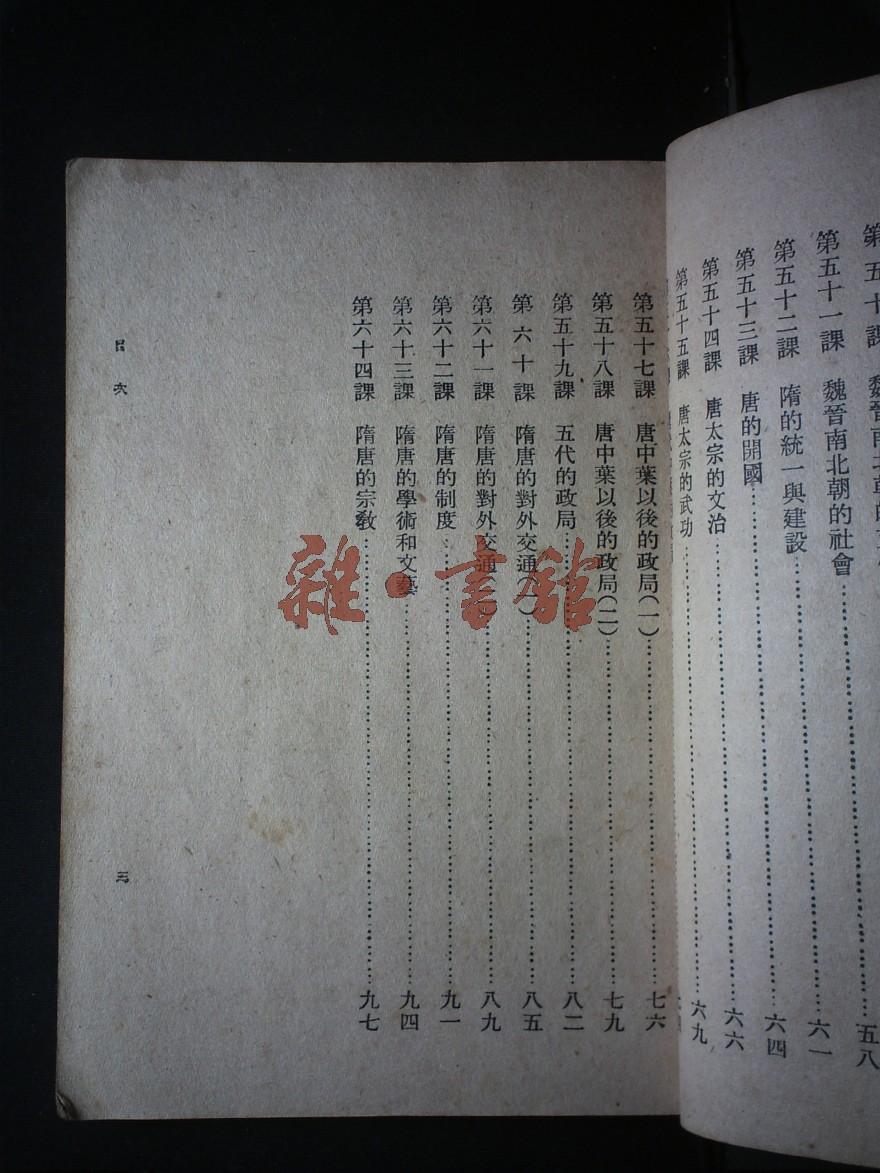 第五十課　魏晉南北朝的
第五十一課　魏晉南北朝的社會……五八
第五十二課　隋的統一與建設……六一
第五十三課　唐的開國……六四
第五十四課　唐太宗的文治……六六
第五十五課　唐太宗的武功……六九
第五十七課　唐中葉以後的政局(一)……七六
第五十八課　唐中葉以後的政局(二)……七九
第五十九課　五代的政局……八二
第六十課　隋唐的對外交通(一)……八五
第六十一課　隋唐的對外交通(二)……八九
第六十二課　隋唐的制度……九一
第六十三課　隋唐的學術和文藝……九四
第六十四課　隋唐的宗敎……九七
目次
三
雜·書館